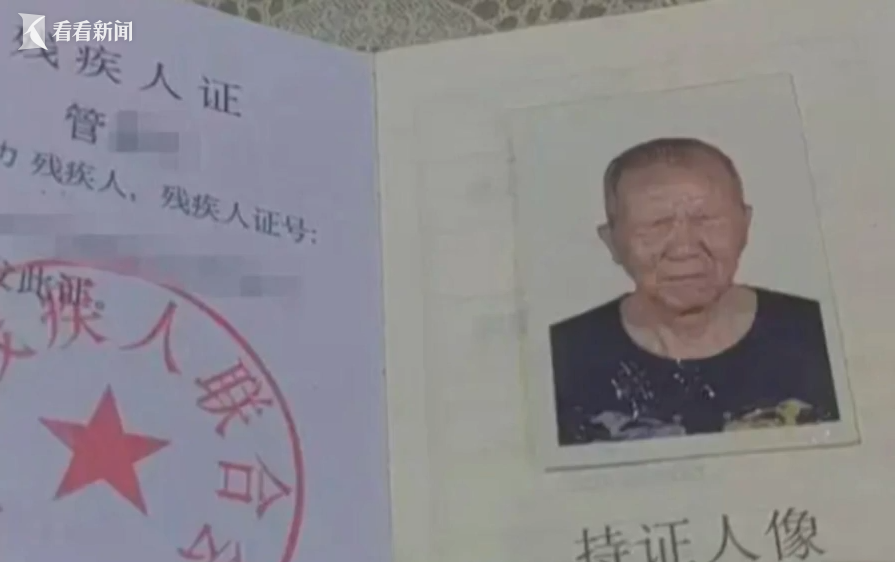 看看新闻
残疾人证
管
为残疾人，残疾人证号：
此证。
疾人联合
持证人像